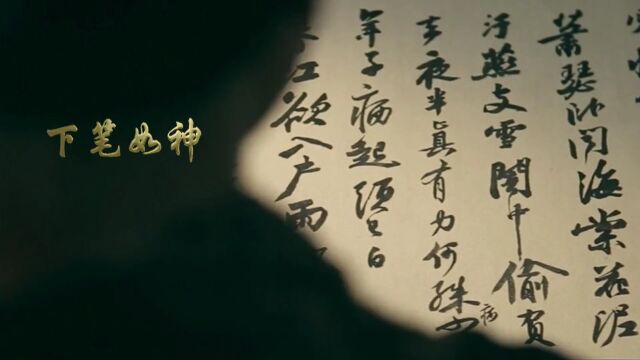 下笔如神
蕭瑟卧聞海棠花泥
汙燕支雪闇中偷負
去夜半真有力何殊
病
年子病起須已白
江欲入户雨